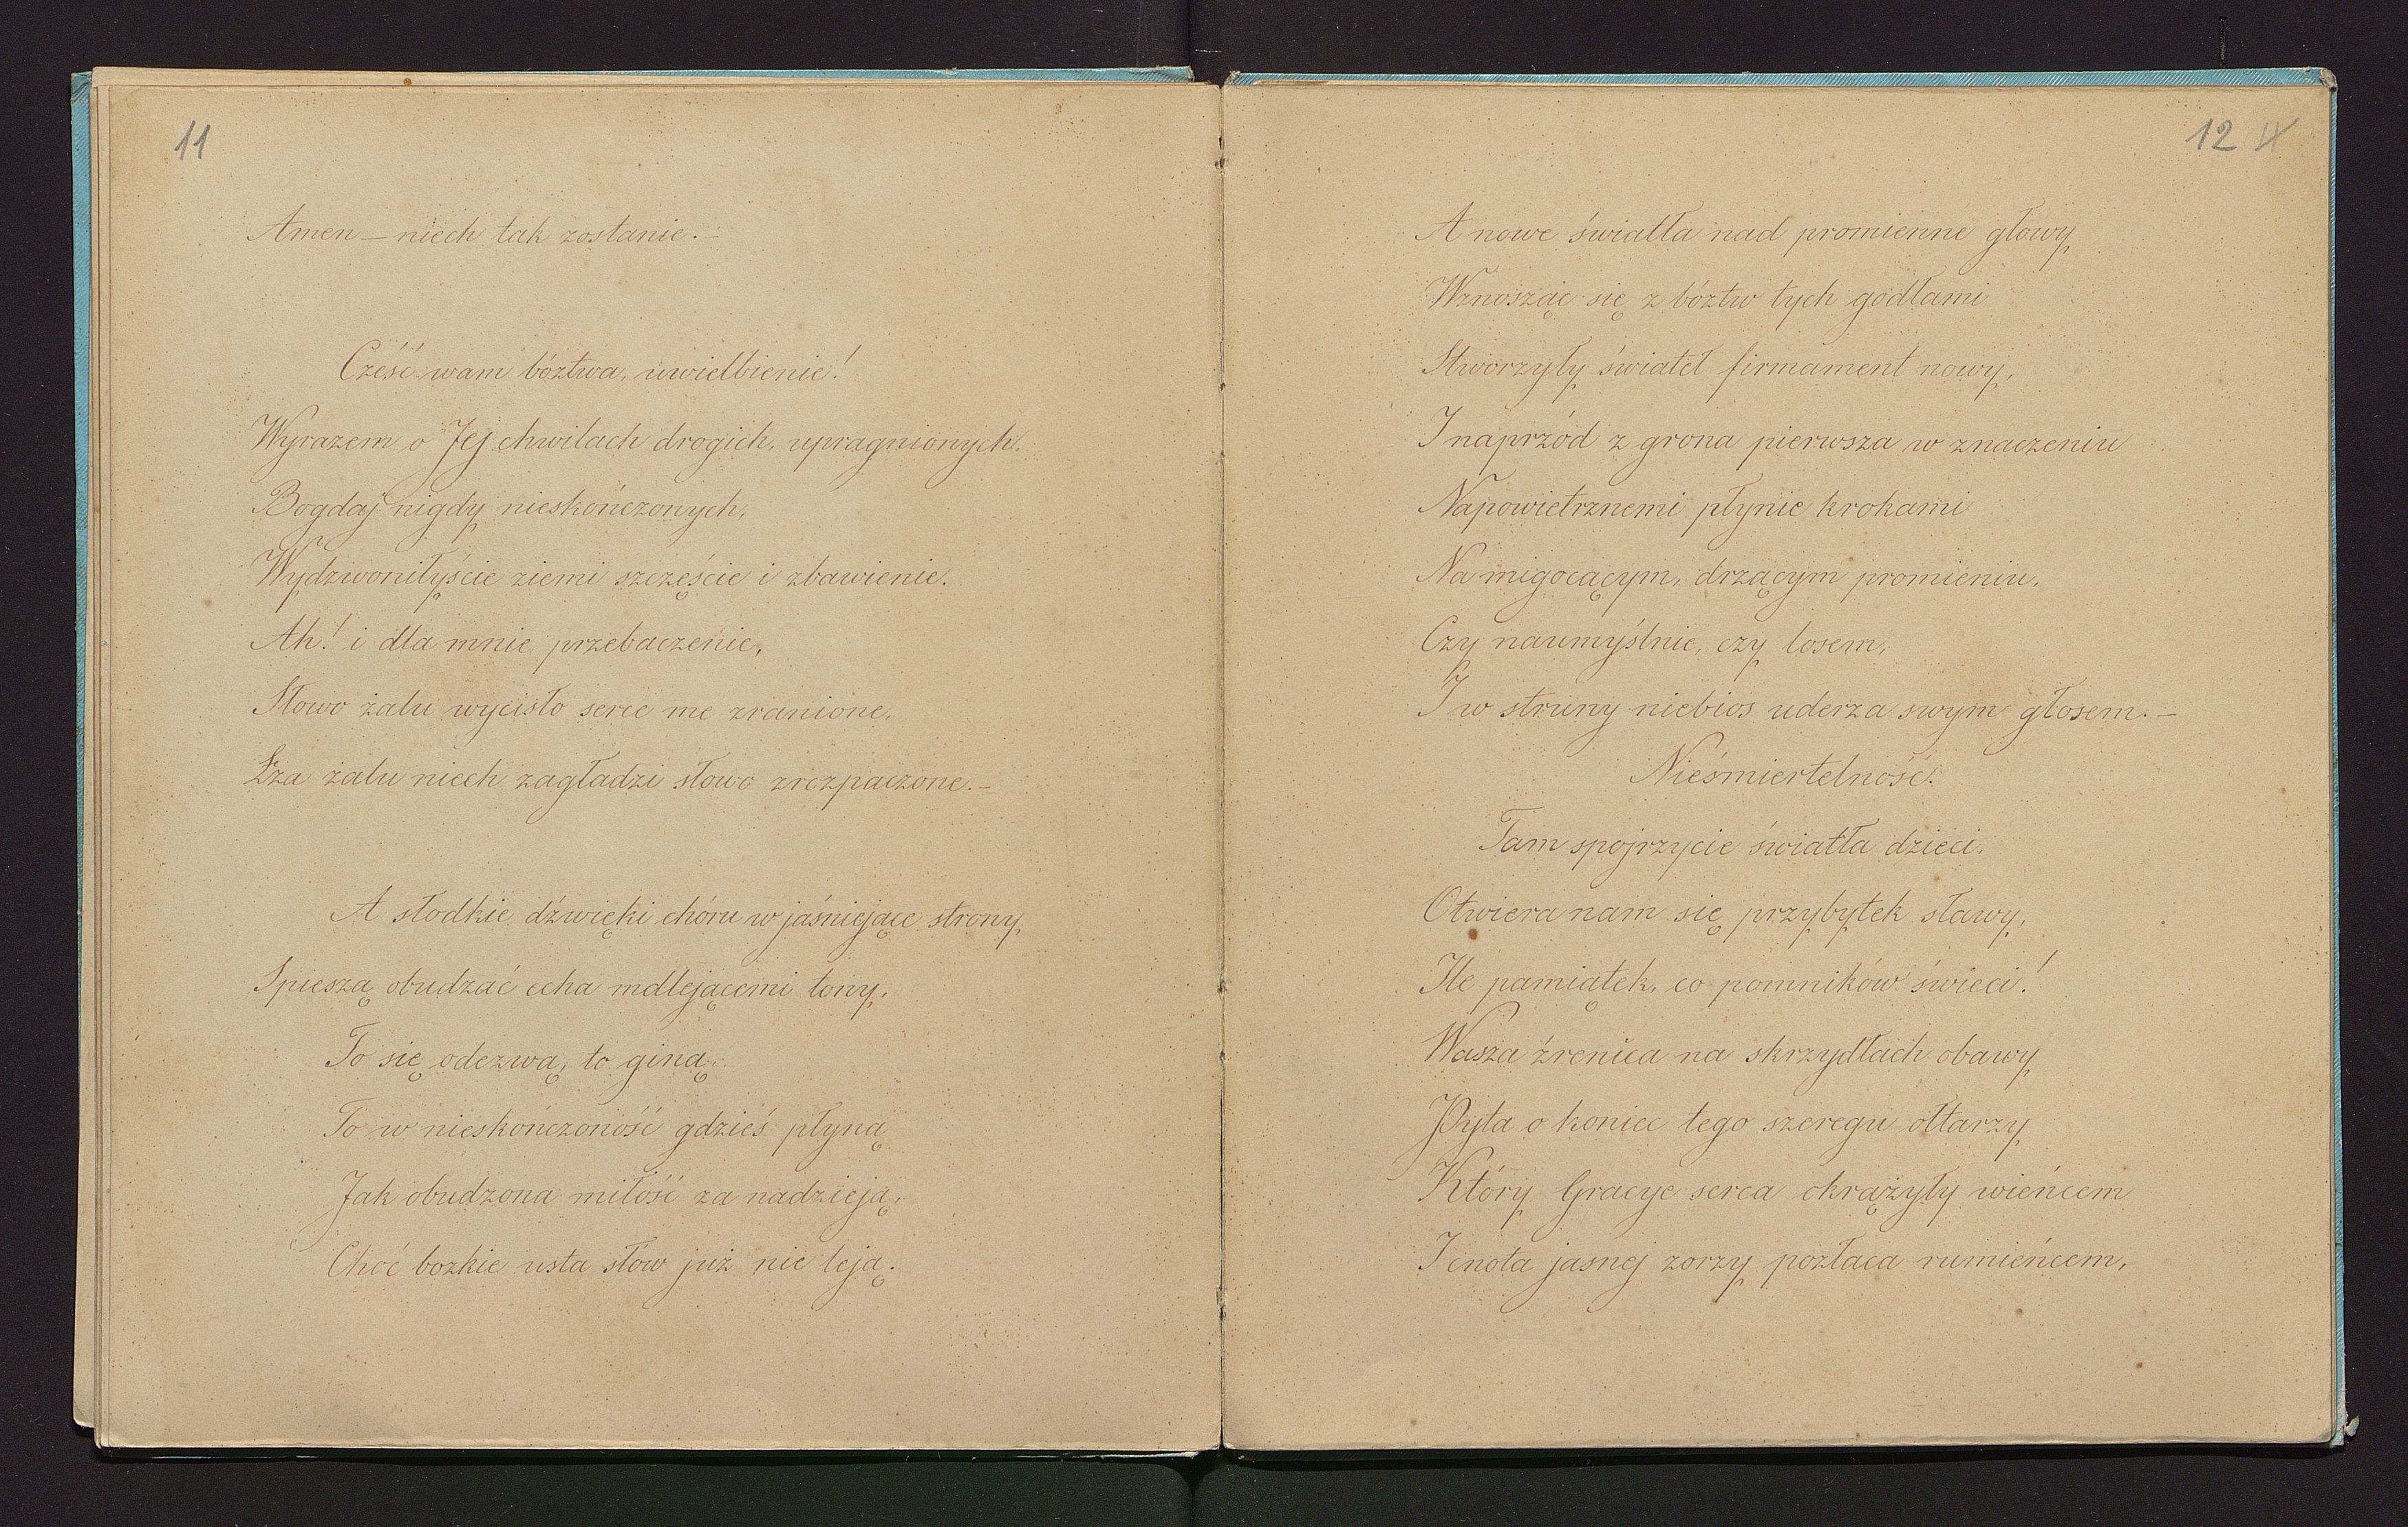 11
Amen — niech tak zostanie. —
Cześć wam bóztwa, uwielbienie!
Wyrazem o Jej chwilach drogich, upragnionych,
Bogdaj nigdy nieskończonych,
Wydzwoniłyście ziemi szczęście i zbawienie.
Ah! i dla mnie przebaczenie,
Słowo żalu wycisło serce me zranione,
Łza żalu niech zagładzi słowo zrozpaczone. —
A słodkie dźwięki chóru w jaśniejące strony
Spieszą obudzać echa mdlejącemi tony,
To się odezwą, to giną,
To w nieskończoność gdzieś płyną
Jak obudzona miłość za nadzieją,
Choć bozkie usta słów już nie leją.
12
A nowe światła nad promienne głowy
Wznosząc się z bóztw tych godłami
Stworzyły świateł firmament nowy,
I naprzód z grona pierwsza w znaczeniu
Napowietrznemi płynie krokami
Na migocącym, drzącym promieniu,
Czy naumyślnie, czy losem,
I w struny niebios uderza swym głosem. —
Nieśmiertelność.
Tam spojrzycie światła dzieci,
Otwiera nam się przybytek sławy,
Ile pamiątek, co pomników świeci!
Wasza źrenica na skrzydłach obawy
Pyta o koniec tego szeregu ołtarzy
Który Gracye serca okrążyły wieńcem
I cnota jasnej zorzy pozłaca rumieńcem,